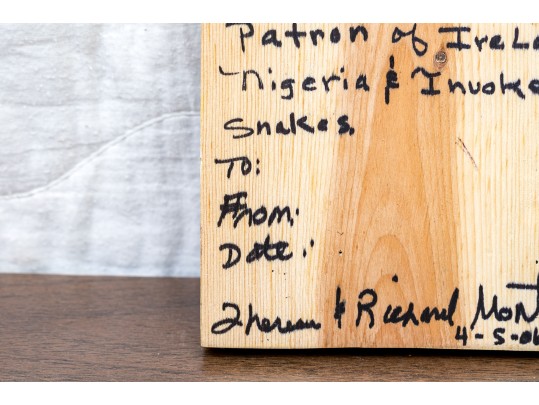 Patron of Irela
Nigeria & Invoke
Snakes.
To:
From:
Date:
& Richard Mont
4-5-06